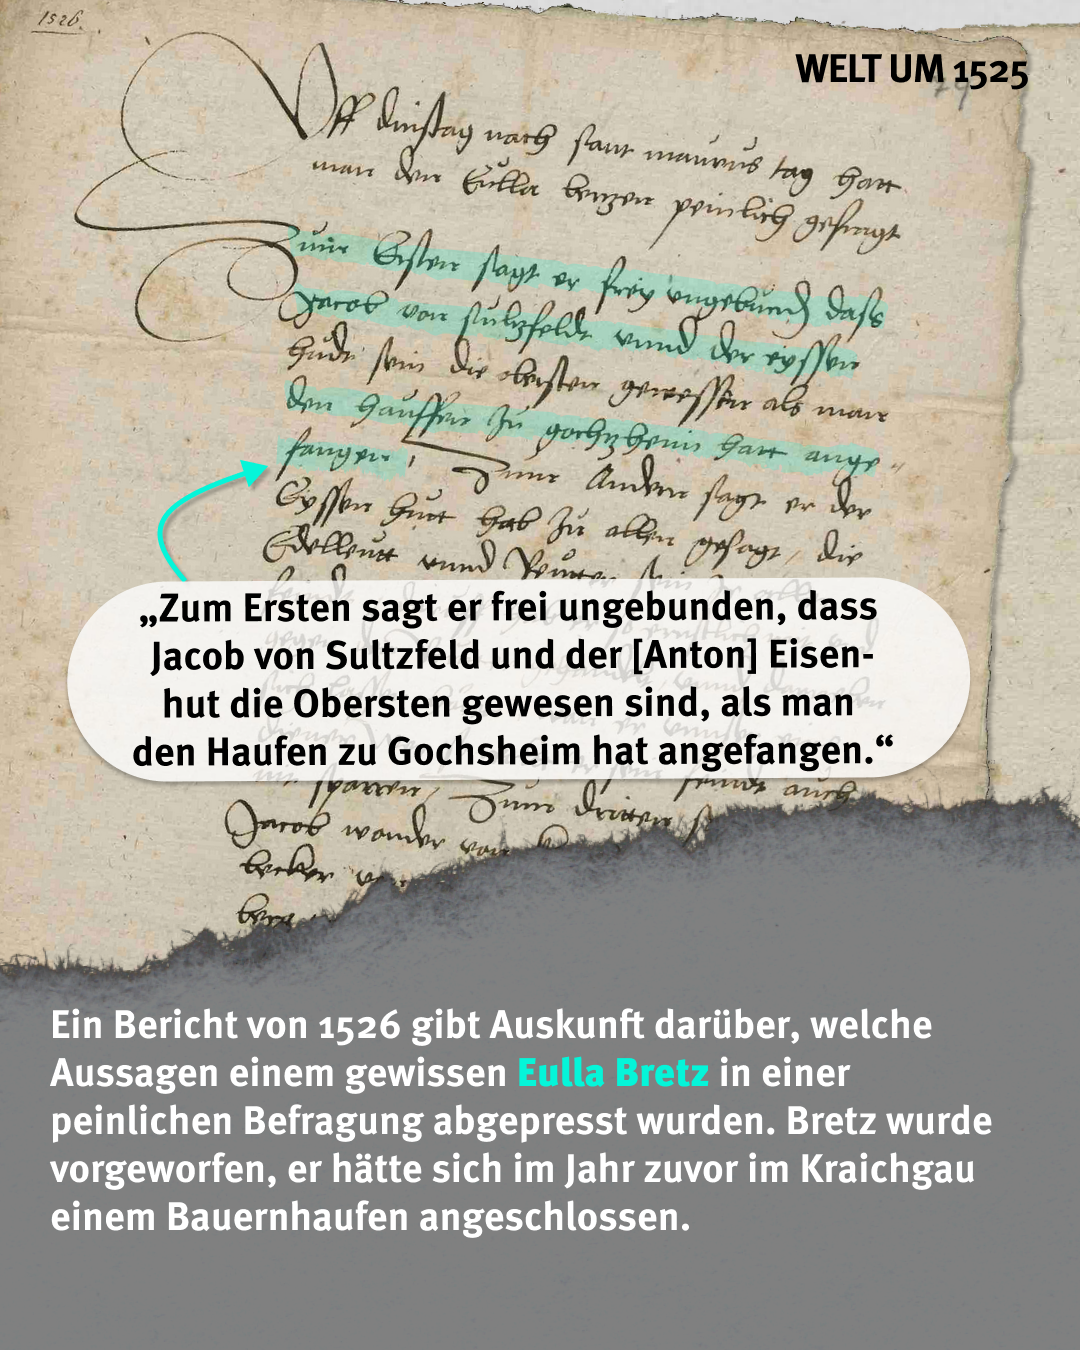 1526.
WELT UM 1525
79
Uff dinstag nach sant maurus tag hatt
man den Eulla bretzen peinlich gefragt
Zum Ersten sagt er frey ungebund dass
Jacob von sultzfeldt unnd der eyssen
hudt sein die obersten gewessen als man
den hauffen zu gochtzheim hatt ange„
fangen, Zum Andern sagt er der
Eyssen hutt hab zu allen gesagt, die
Edelleutt unnd
„Zum Ersten sagt er frei ungebunden, dass
Jacob von Sultzfeld und der [Anton] Eisen-
hut die Obersten gewesen sind, als man
den Haufen zu Gochsheim hat angefangen.“
sparren, Zum dritten
Jacob wonder von
becker
Ein Bericht von 1526 gibt Auskunft darüber, welche
Aussagen einem gewissen Eulla Bretz in einer
peinlichen Befragung abgepresst wurden. Bretz wurde
vorgeworfen, er hätte sich im Jahr zuvor im Kraichgau
einem Bauernhaufen angeschlossen.